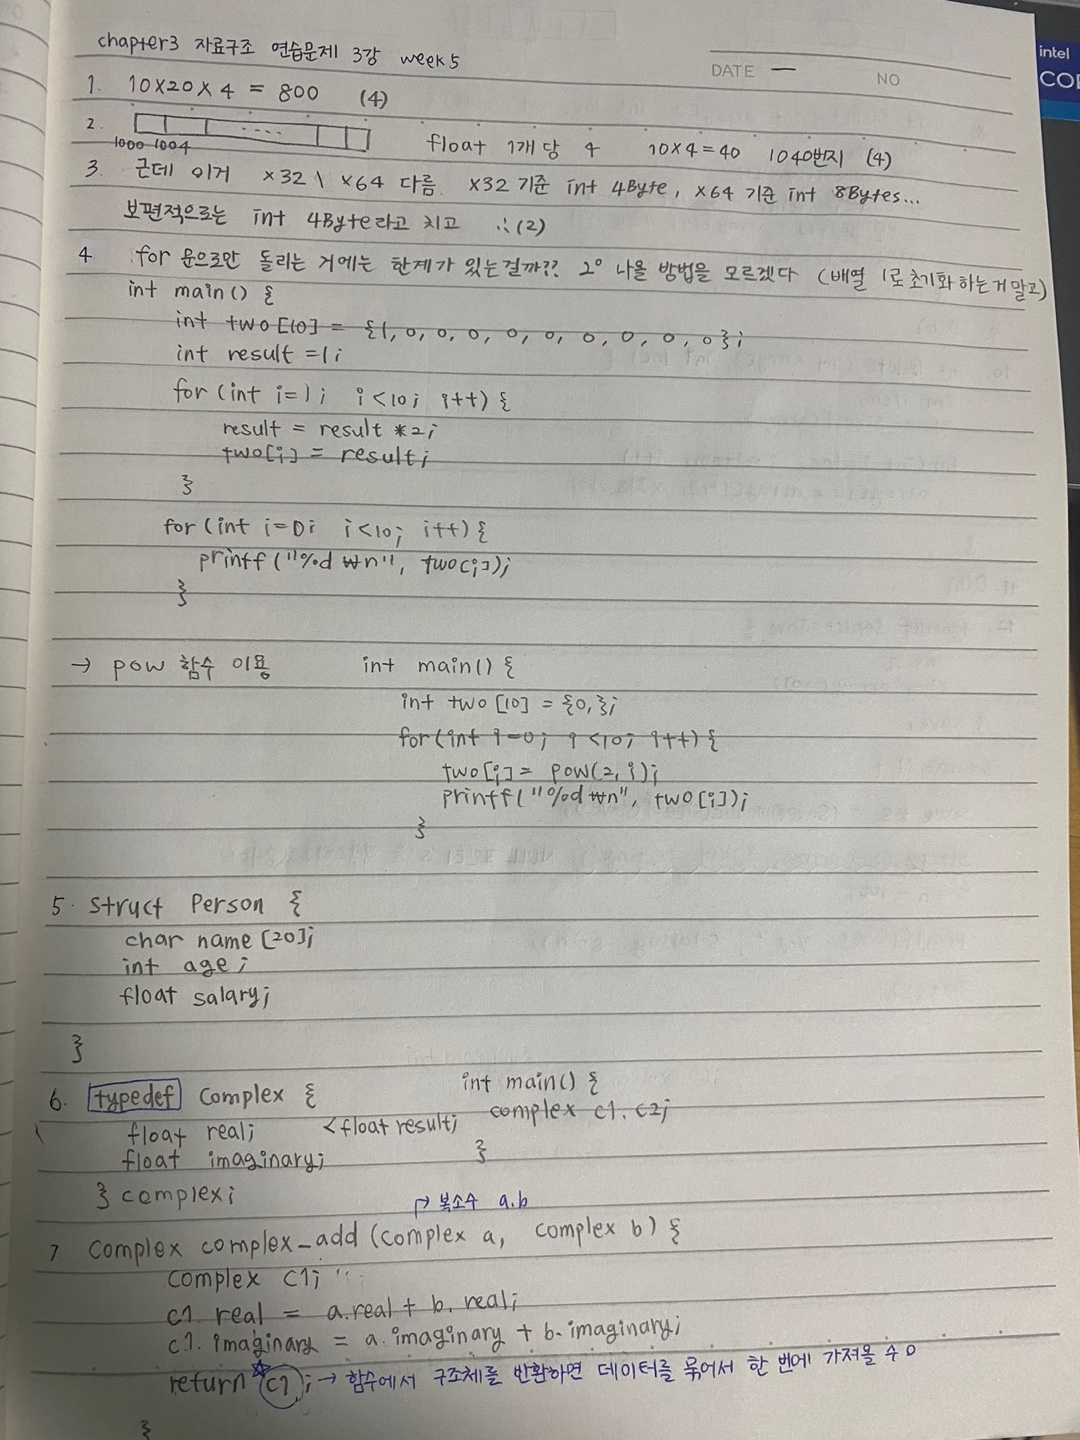 chapter3 자료구조 연습문제 3강 week5
DATE — NO
intel
1. 10×20×4 = 800 (4)
2. .... float 1개당 4 10×4=40 1040번지 (4)
1000 1004
3. 근데 이거 ×32 \ ×64 다름. ×32 기준 int 4Byte, ×64 기준 int 8Bytes...
보편적으로는 int 4Byte라고 치고 ∴(2)
4 for 문으로만 돌리는 거에는 한계가 있는걸까?? 2⁰ 나올 방법을 모르겠다 (배열 1로 초기화 하는거 말고)
int main() {
int two[10] = {1, 0, 0, 0, 0, 0, 0, 0, 0, 0};
int result =1;
for (int i=1; i<10; i++) {
result = result *2;
two[i] = result;
}
for (int i=0; i<10; i++) {
printf ("%d ₩n", two[i]);
}
→ pow 함수 이용 int main() {
int two [10] = {0,};
for (int i=0; i<10; i++) {
two[i] = pow(2, i);
printf ("%d ₩n", two[i]);
}
5. struct Person {
char name [20];
int age;
float salary;
}
6. typedef Complex { int main() {
float real; <float result; complex c1. c2;
float imaginary; }
} complex;
↱ 복소수 a.b
7. Complex complex_add (complex a, complex b) {
complex c1;
c1. real = a.real + b. real;
c1. imaginary = a. imaginary + b. imaginary;
return c1; → 함수에서 구조체를 반환하면 데이터를 묶어서 한 번에 가져올 수 o
}